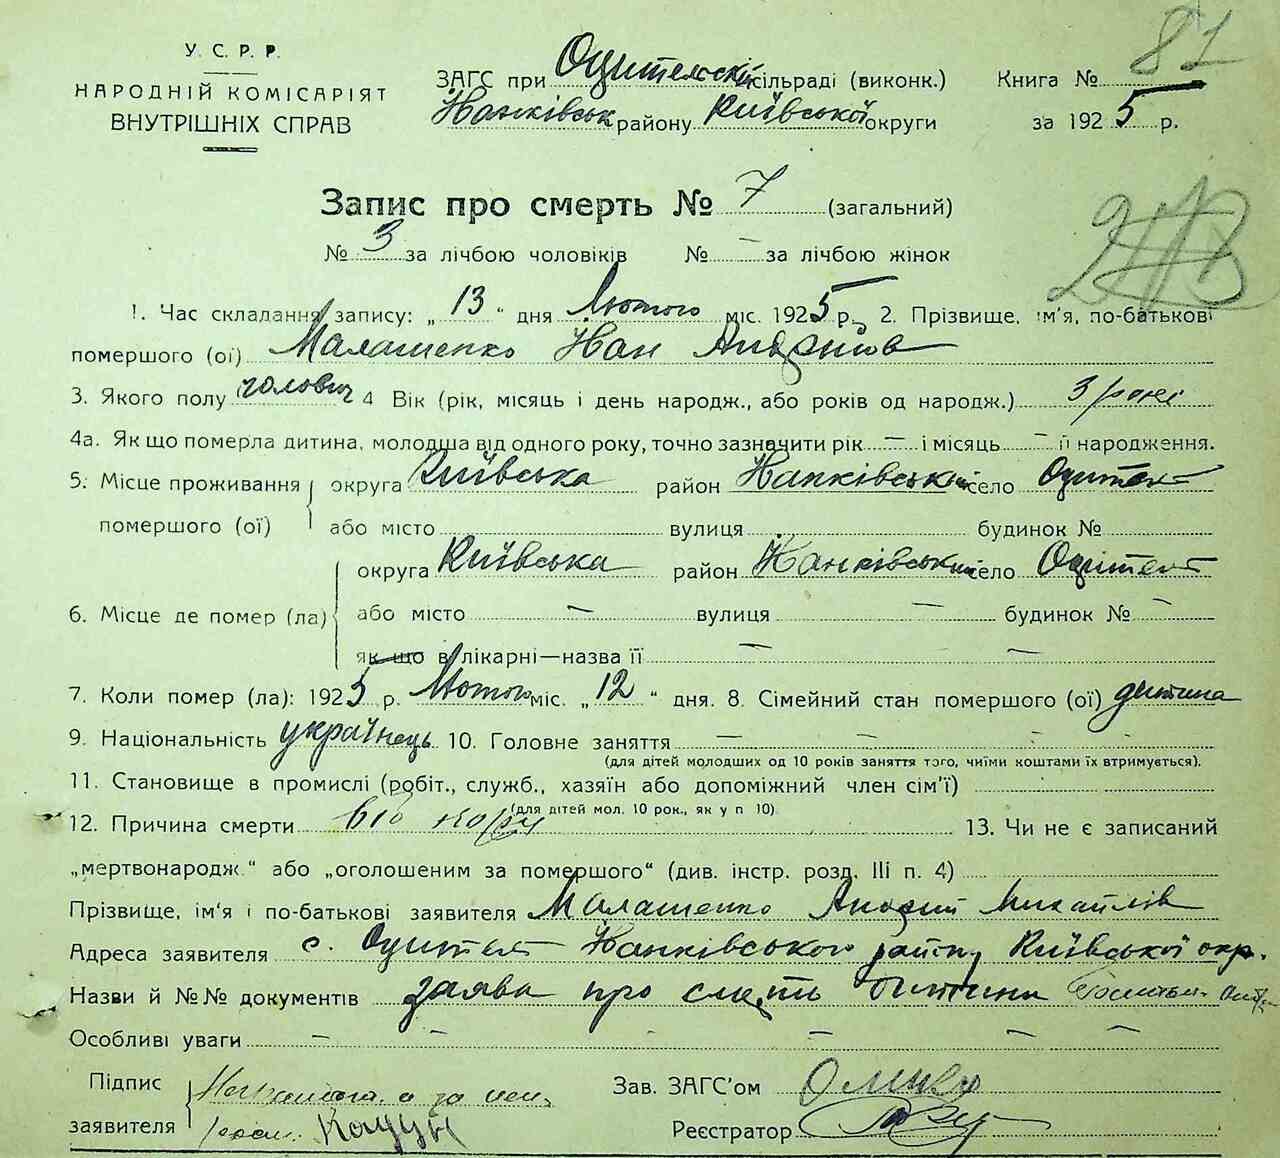 У. С. Р. Р.
НАРОДНІЙ КОМІСАРІЯТ
ВНУТРІШНІХ СПРАВ
81
ЗАГС при Одительскій сільраді (виконк.) Книга №
району Київської округи за 1925 р.
Запис про смерть № 7 (загальний)
№ 3 за лічбою чоловіків № — за лічбою жінок
1. Час складання запису: „13“ дня Лютого міс. 1925 р. 2. Прізвище, ім'я, по-батькові
помершого (ої) Малашенко Іван Андріїв
3. Якого полу чоловіч 4 Вік (рік, місяць і день народж., або років од народж.) 3 роки
4а. Як що померла дитина, молодша від одного року, точно зазначити рік — і місяць — її народження.
5. Місце проживання округа Київська район село
помершого (ої) або місто вулиця будинок №
округа Київська район село
6. Місце де помер (ла) або місто — вулиця — будинок № —
як що в лікарні—назва її — —
7. Коли помер (ла): 1925 р. Лютого міс. „12“ дня. 8. Сімейний стан помершого (ої) дитина
9. Національність українець 10. Головне заняття — — — —
(для дітей молодших од 10 років заняття того, чиїми коштами їх втримується).
11. Становище в промислі (робіт., служб., хазяїн або допоміжний член сім'ї)
(для дітей мол. 10 рок., як у п 10)
12. Причина смерти від кору 13. Чи не є записаний
„мертвонародж.“ або „оголошеним за помершого“ (див. інстр. розд. III п. 4)
Прізвище, ім'я і по-батькові заявителя Малашенко Андрій Михайлів
Адреса заявителя с. району Київської окр.
Назви й №№ документів заява про смерть дитини
Особливі уваги — — — — — —
Підпис заявителя
Зав. ЗАГС'ом
Реєстратор